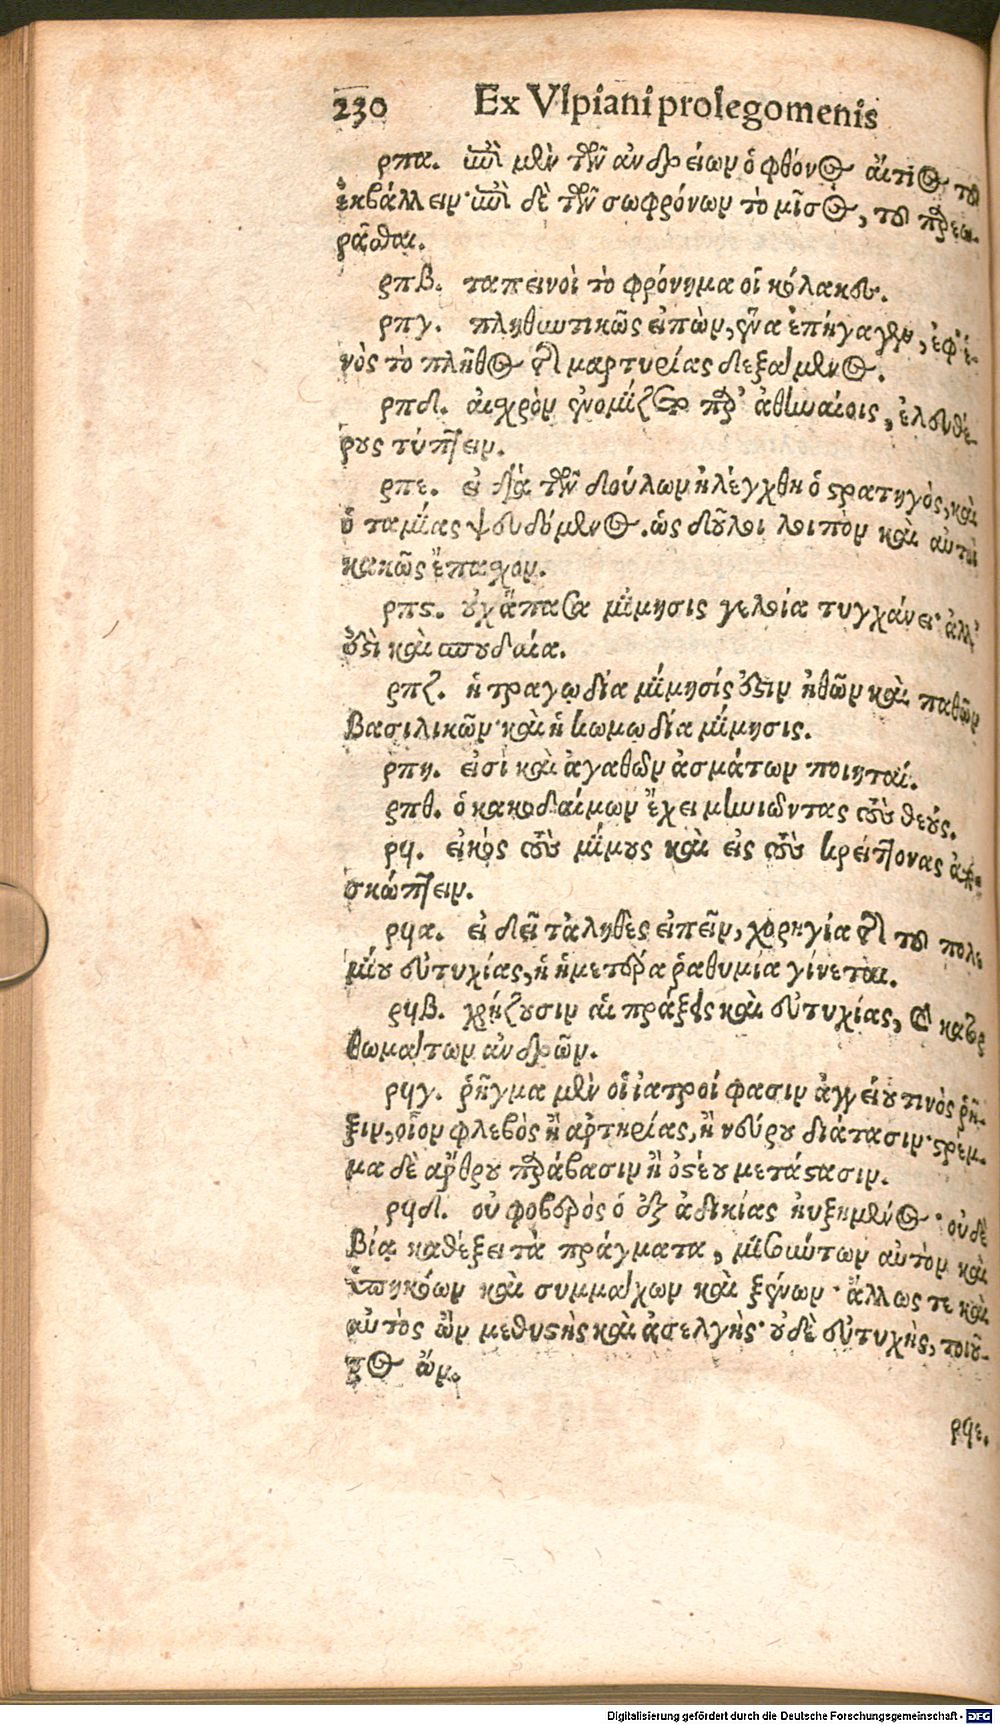 230 Ex Vlpiani prolegomenis
ρπα. ἐπὶ μὲν τῶν ἀνδρείων ὁ φθόνος αἴτιος τοῦ
ἐκβάλλειν· ἐπὶ δὲ τῶν σωφρόνων τὸ μῖσος, τοῦ παρεω-
ρᾶσθαι.
ρπβ. ταπεινοὶ τὸ φρόνημα οἱ κόλακες.
ρπγ. πληθυντικῶς εἰπὼν, ἕνα ἐπήγαγεν, ἐφ' ἑ-
νὸς τὸ πλῆθος τῆς μαρτυρίας δεξάμενος.
ρπδ. αἰσχρὸν ἐνομίζετο παρ' ἀθηναίοις, ἐλευθέ-
ρους τύπτειν.
ρπε. εἰ διὰ τῶν δούλων ἠλέγχθη ὁ στρατηγὸς, καὶ
ὁ ταμίας ψευδόμενος. ὡς δοῦλοι λοιπὸν καὶ αὐτοὶ
κακῶς ἔπασχον.
ρπϛ. οὐχ ἅπασα μίμησις γελοία τυγχάνει· ἀλλ'
ἔστι καὶ σπουδαία.
ρπζ. ἡ τραγῳδία μίμησίς ἐστιν ἠθῶν καὶ παθῶν
βασιλικῶν· καὶ ἡ κωμῳδία μίμησις.
ρπη. εἰσὶ καὶ ἀγαθῶν ἀσμάτων ποιηταί.
ρπθ. ὁ κακοδαίμων ἔχει μηνιῶντας τοὺς θεούς.
ρϟ. εἰκὸς τοὺς μίμους καὶ εἰς τοὺς κρείττονας ἀπο-
σκώπτειν.
ρϟα. εἰ δεῖ τἀληθὲς εἰπεῖν, χορηγία τῆς τοῦ πολε
μίου εὐτυχίας, ἡ ἡμετέρα ῥαθυμία γίνεται.
ρϟβ. χρήζουσιν αἱ πράξεις καὶ εὐτυχίας, καὶ κατορ
θωμάτων ἀνδρῶν.
ρϟγ. ῥῆγμα μὲν οἱ ἰατροί φασιν ἀγγείου τινὸς ῥῆ-
ξιν, οἷον φλεβὸς ἢ ἀρτηρίας, ἢ νεύρου διάτασιν· στρέμ-
μα δὲ ἄρθρου παράβασιν ἢ ὀστέου μετάστασιν.
ρϟδ. οὐ φοβερὸς ὁ ἐξ ἀδικίας ηὐξημένος· οὐδὲ
βίᾳ καθέξει τὰ πράγματα, μισούντων αὐτὸν καὶ
ὑπηκόων καὶ συμμάχων καὶ ξένων· ἄλλως τε καὶ
αὐτὸς ὢν μεθυστὴς καὶ ἀσελγής· οὐδὲ εὐτυχὴς, τοιοῦ-
τος ὤν.
ρϟε.
Digitalisierung gefördert durch die Deutsche Forschungsgemeinschaft - DFG